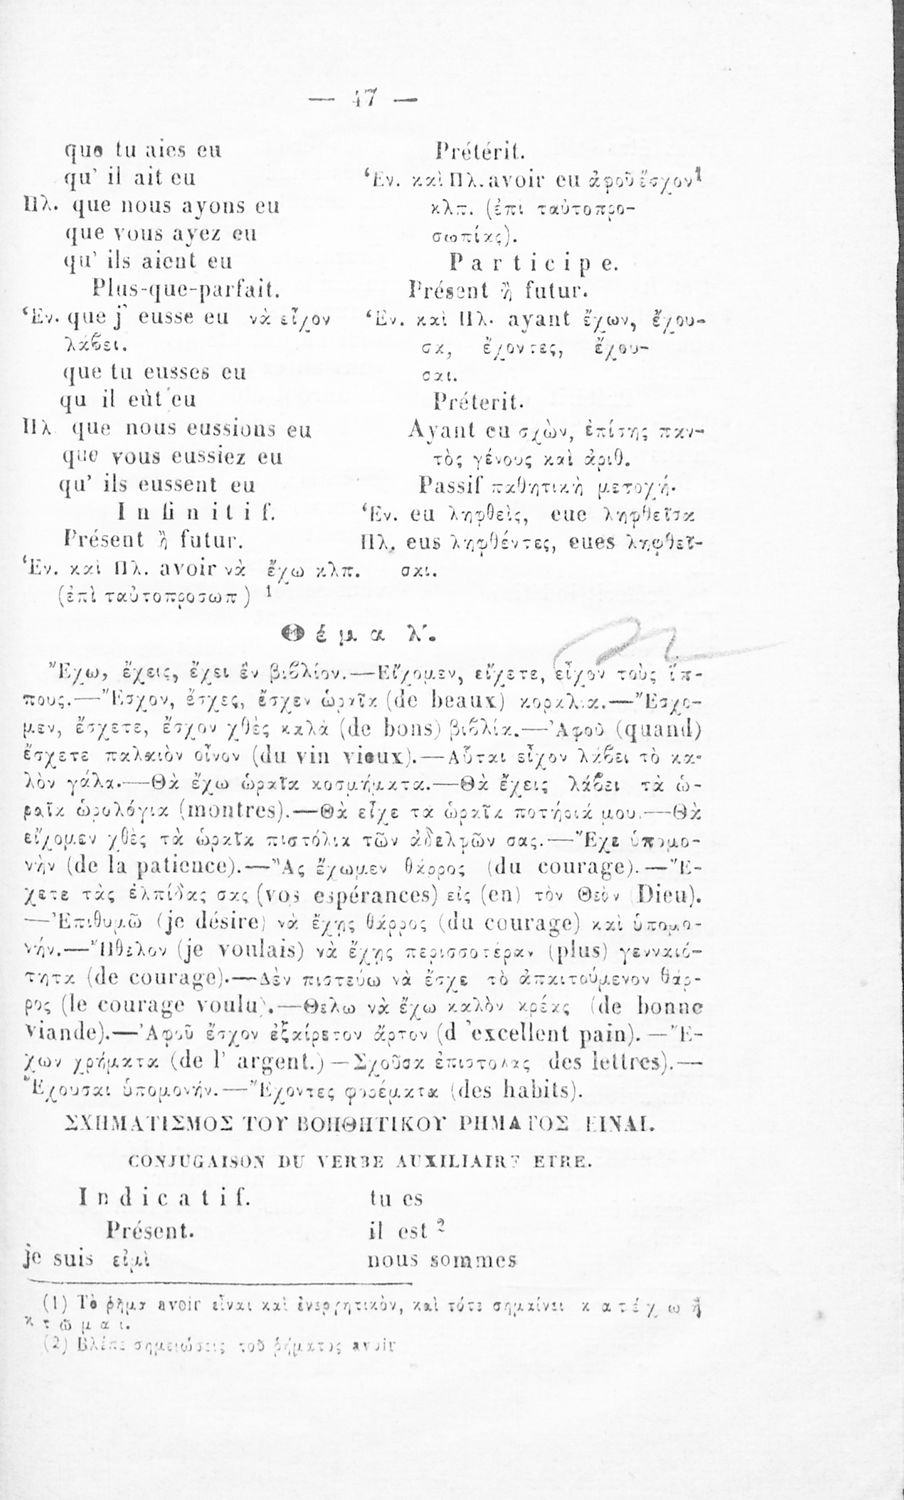 — 47 —
que tu aies eu
qu' il ait eu
Πλ. que nous ayons eu
que vous ayez eu
qu' ils aient eu
Plus-que-parfait.
Ἑν. que j' eusse eu νὰ εἶχον
λάβει.
que tu eusses eu
qu il eût eu
Πλ que nous eussions eu
que vous eussiez eu
qu' ils eussent eu
Infinitif.
Présent ἢ futur.
Ἑν. καὶ Πλ. avoir νὰ ἔχω κλπ.
(ἐπὶ ταὐτοπροσωπ) ¹
Prétérit.
Ἑν. καὶ Πλ. avoir eu ἀφοῦ ἔσχον¹
κλπ. (ἐπὶ ταὐτοπρο-
σωπίας).
Participe.
Présent ἢ futur.
Ἑν. καὶ Πλ. ayant ἔχων, ἔχου-
σα, ἔχοντες, ἔχου-
σαι.
Préterit.
Ayant eu σχὼν, ἐπίσης παν-
τὸς γένους καὶ ἀριθ.
Passif παθητικὴ μετοχή.
Ἑν. eu ληφθεὶς, eue ληφθεῖσα
Πλ. eus ληφθέντες, eues ληφθεῖ-
σαι.
Θέμα λ'.
Ἔχω, ἔχεις, ἔχει ἓν βιβλίον.—Εἴχομεν, εἴχετε, εἶχον τοὺς ἵπ-
πους.—Ἔσχον, ἔσχες, ἔσχεν ὡραῖα (de beaux) κοράλλια.—Ἔσχο-
μεν, ἔσχετε, ἔσχον χθὲς καλὰ (de bons) βιβλία.—Ἀφοῦ (quand)
ἔσχετε παλαιὸν οἶνον (du vin vieux).—Αὗται εἶχον λάβει τὸ κα-
λὸν γάλα.—Θὰ ἔχω ὡραῖα κοσμήματα.—Θὰ ἔχεις λάβει τὰ ὡ-
ραῖα ὡρολόγια (montres).—Θὰ εἶχε τὰ ὡραῖα ποτήριά μου.—Θὰ
εἴχομεν χθὲς τὰ ὡραῖα πιστόλια τῶν ἀδελφῶν σας.—Ἔχε ὑπομο-
νὴν (de la patience).—Ἂς ἔχωμεν θάρρος (du courage).—Ἔ-
χετε τὰς ἐλπίδας σας (vos espérances) εἰς (en) τὸν Θεὸν (Dieu).
—Ἐπιθυμῶ (je désire) νὰ ἔχῃς θάρρος (du courage) καὶ ὑπομο-
νήν.—Ἤθελον (je voulais) νὰ ἔχῃς περισσοτέραν (plus) γενναιό-
τητα (de courage).—Δὲν πιστεύω νὰ ἔσχε τὸ ἀπαιτούμενον θάρ-
ρος (le courage voulu).—Θέλω νὰ ἔχω καλὸν κρέας (de bonne
viande).—Ἀφοῦ ἔσχον ἐξαίρετον ἄρτον (d 'excellent pain).—Ἔ-
χων χρήματα (de l' argent.)—Σχοῦσα ἐπιστολὰς des lettres).—
Ἔχουσαι ὑπομονήν.—Ἔχοντες φορέματα (des habits).
ΣΧΗΜΑΤΙΣΜΟΣ ΤΟΥ ΒΟΗΘΗΤΙΚΟΥ ΡΗΜΑΤΟΣ ΕΙΝΑΙ.
CONJUGAISON DU VERBE AUXILIAIRE ETRE.
Indicatif.
Présent.
je suis εἰμὶ
tu es
il est ²
nous sommes
(1) Τὸ ῥῆμα avoir εἶναι καὶ ἐνεργητικόν, καὶ τότε σημαίνει κατέχω ἢ
κτῶμαι.
(2) Βλέπε σημειώσεις τοῦ ῥήματος avoir